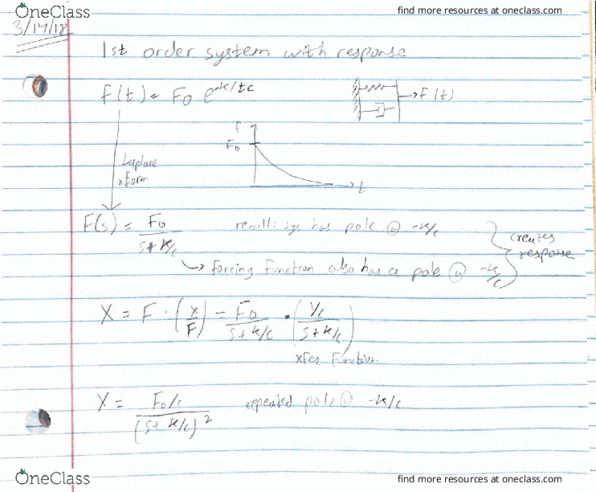 OneClass
find more resources at oneclass.com
3/14/18
1st order system with response
f(t) = F0 e^-k/tc
→ F(t)
Laplace
xform
F
F0
t
F(s) = F0 / (s + k/c)
recall: sys has pole @ -k/c
creates
response
↳ Forcing Function also has a pole @ -k/c
X = F · (X/F) = F0 / (s + k/c) · ((1/c) / (s + k/c))
xfer Function
X = (F0/c) / (s + k/c)^2
repeated pole @ -k/c
OneClass
find more resources at oneclass.com